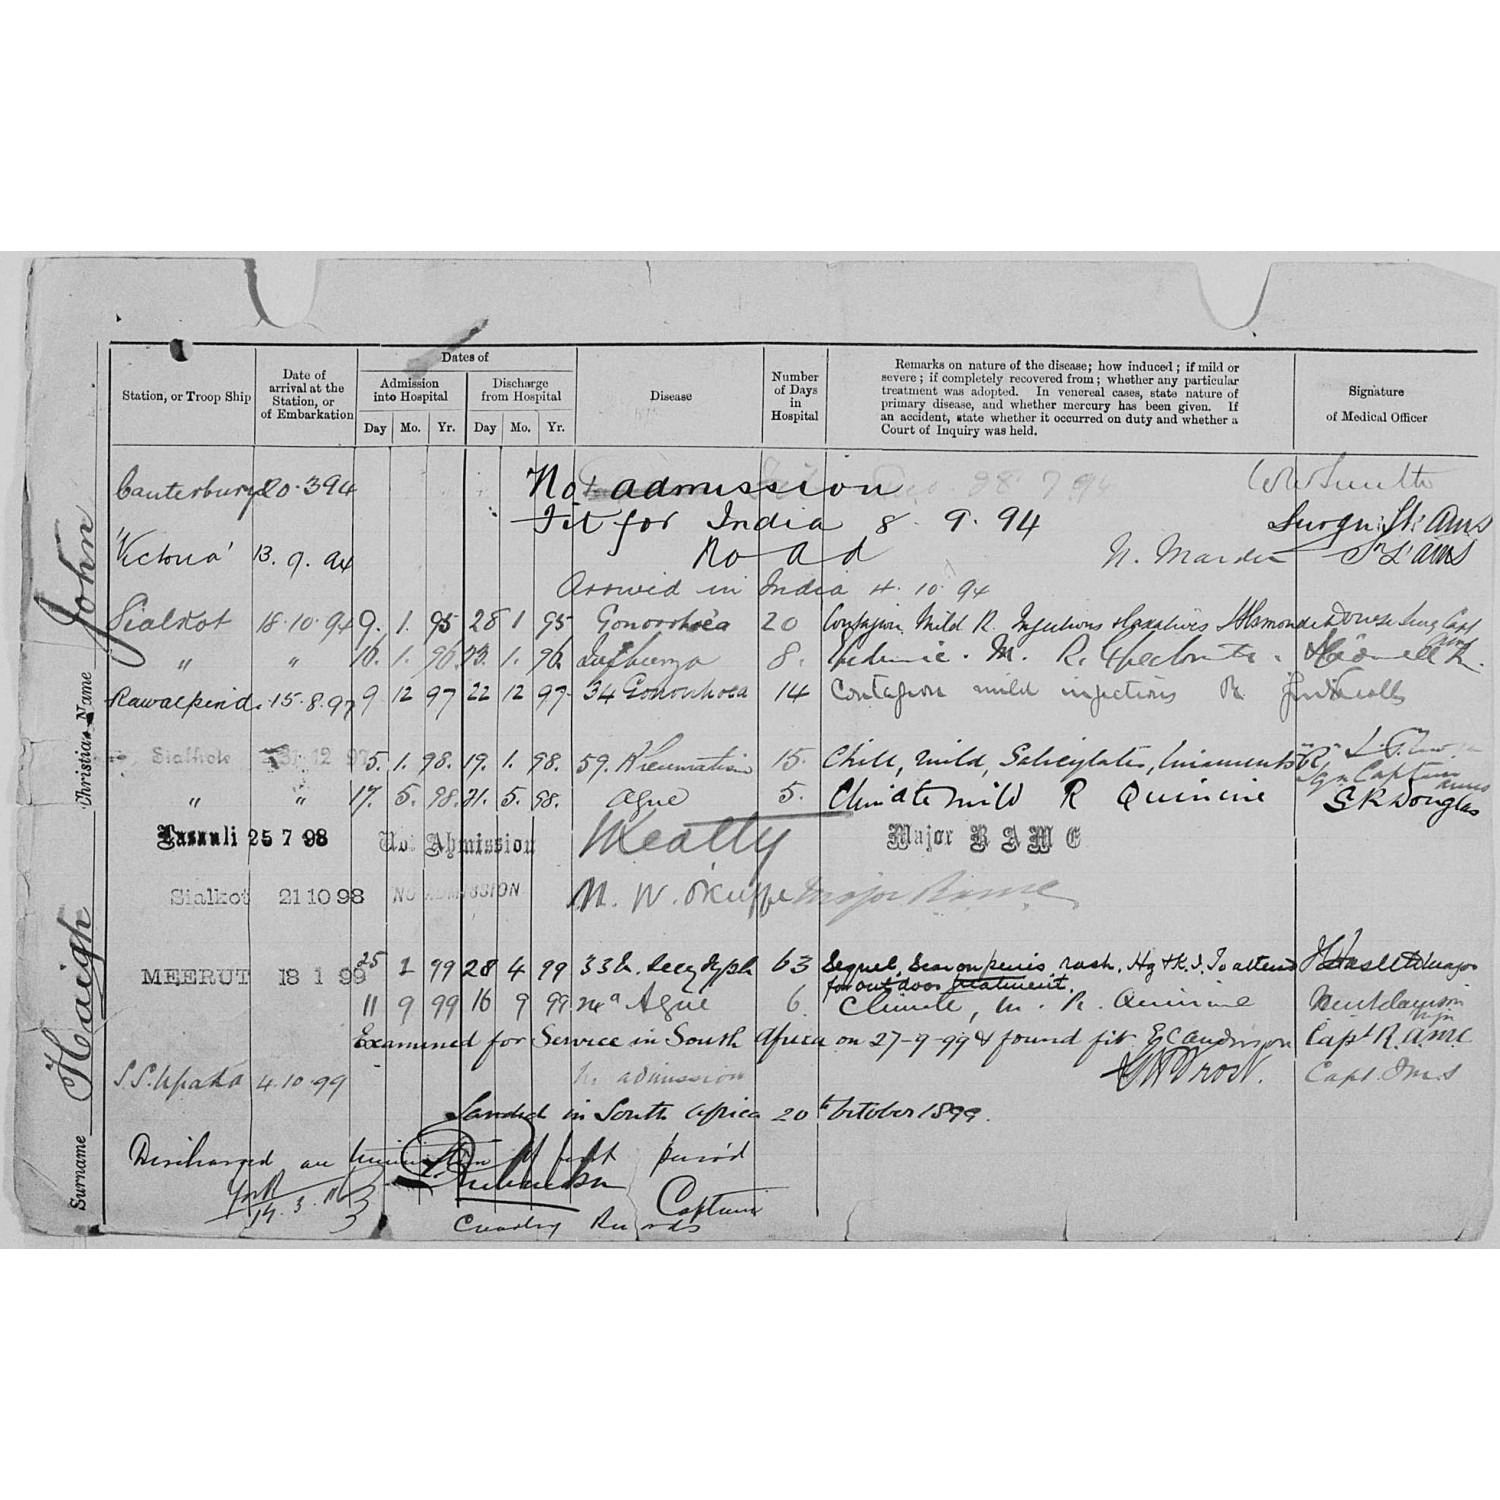 Surname Haigh Christian Name John
Station, or Troop Ship
Date of arrival at the Station, or of Embarkation
Dates of
Admission into Hospital
Discharge from Hospital
Day Mo. Yr. Day Mo. Yr.
Disease
Number of Days in Hospital
Remarks on nature of the disease; how induced; if mild or
severe; if completely recovered from; whether any particular
treatment was adopted. In venereal cases, state nature of
primary disease, and whether mercury has been given. If
an accident, state whether it occurred on duty and whether a
Court of Inquiry was held.
Signature
of Medical Officer
Canterbury 20.3 94 No admission 28 7 94 WW Smith
Fit for India 8. 9. 94 Surgn. Lt. AMS
'Victoria' 13. 9. 94 No ad
Arrived in India 4. 10. 94
Sialkot 18.10.94 9. 1. 95 28 1 95 Gonorrhoea 20 Contagion Mild R. Injections & laxatives
" " 16. 1. 96. 23. 1. 96. Influenza 8. M. R.
Rawalpindi. 15.8.97 9 12 97 22 12 97. 34 Gonorrhoea 14 Contagion mild injections R
Sialkote 31 12 97 5. 1. 98. 19. 1. 98. 59. Rheumatism 15. Chill, mild, Salicylates, liniments "R" Captain
" " 17. 5. 98. 21. 5. 98. Ague 5. Climate mild R Quinine SR Douglas
25 7 98 Not Admission Major RAMC
Sialkot 21 10 98 NO ADMISSION M. W. Major RAMC
MEERUT 18 1 99 25 1 99 28 4 99 33b. Secy Syph 63 Sequel, Scar on penis, rash, Hg & K.I. To attend
for out door treatment.
11 9 99 16 9 99 Ague 6. Climate, m. R. Quinine
Examined for Service in South Africa on 27-9-99 & found fit Capt R.A.M.C
4.10.99 No admission Capt. I.M.S
Landed in South Africa 20th October 1899.
Discharged on termination of first period
York
Captain
Cavalry Records